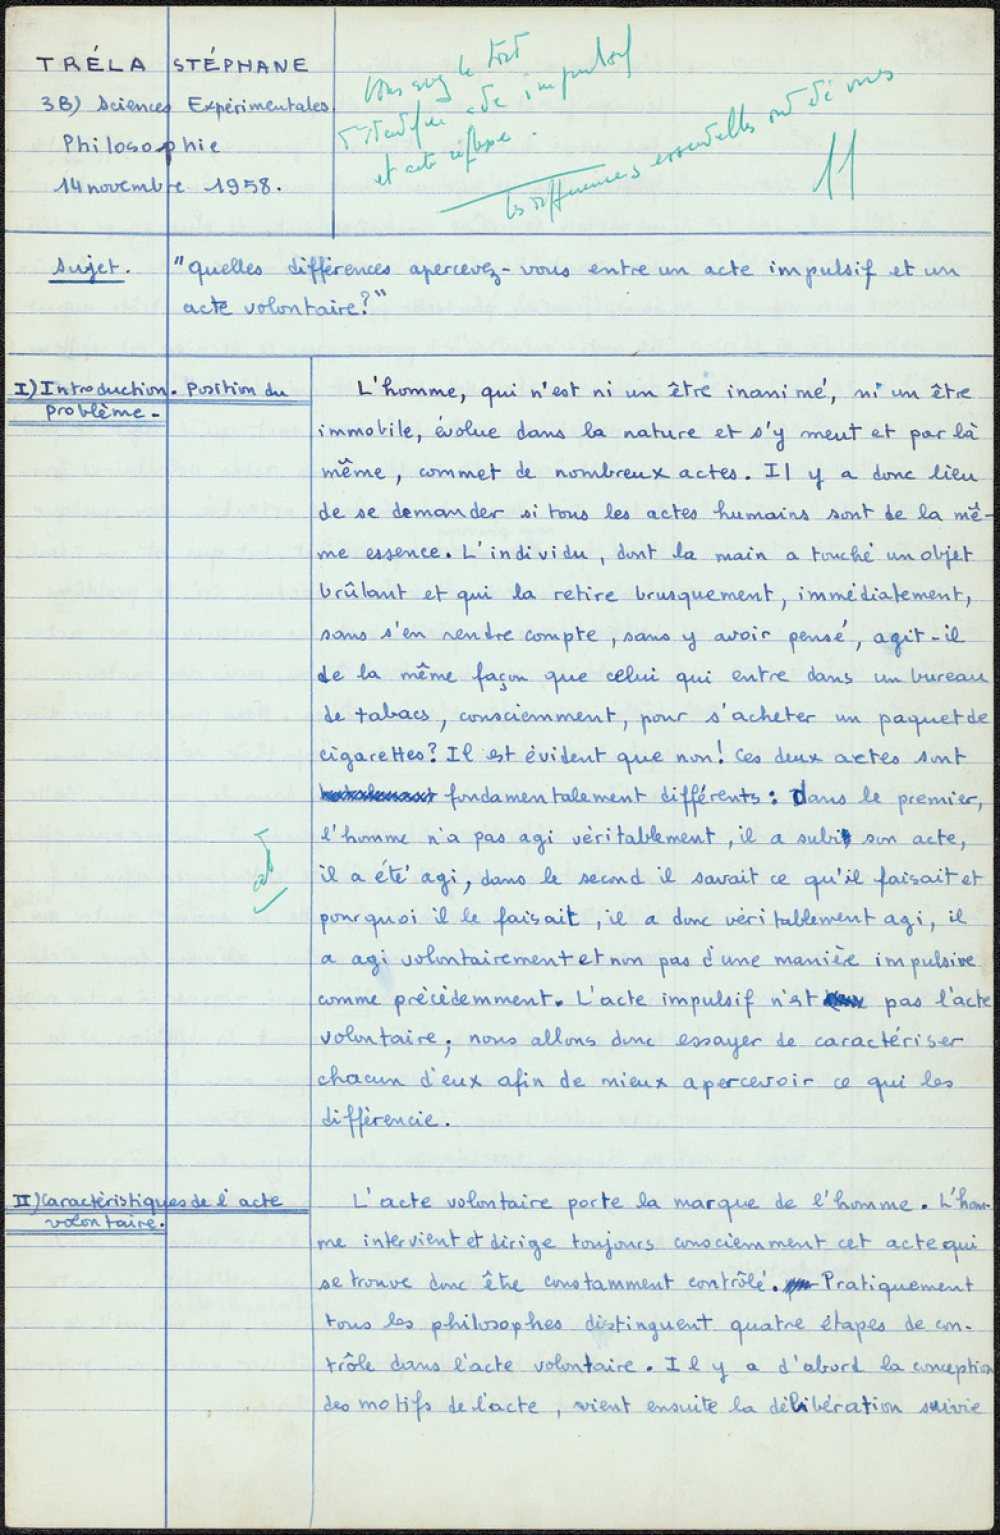 TRÉLA STÉPHANE
3B) Sciences Expérimentales.
Philosophie
14 novembre 1958.
vous avez le tort
d'identifier acte impulsif
et acte réflexe.
les différences essentielles ont été vues
11
Sujet. "Quelles différences apercevez-vous entre un acte impulsif et un
acte volontaire?"
I) Introduction. Position du
problème.
L'homme, qui n'est ni un être inanimé, ni un être
immobile, évolue dans la nature et s'y meut et par là
même, commet de nombreux actes. Il y a donc lieu
de se demander si tous les actes humains sont de la mê-
me essence. L'individu, dont la main a touché un objet
brûlant et qui la retire brusquement, immédiatement,
sans s'en rendre compte, sans y avoir pensé, agit-il
de la même façon que celui qui entre dans un bureau
de tabacs, consciemment, pour s'acheter un paquet de
cigarettes? Il est évident que non! Ces deux actes sont
fondamentalement différents: dans le premier,
l'homme n'a pas agi véritablement, il a subi son acte,
il a été agi, dans le second il savait ce qu'il faisait et
pourquoi il le faisait, il a donc véritablement agi, il
a agi volontairement et non pas d'une manière impulsive
comme précédemment. L'acte impulsif n'est pas l'acte
volontaire; nous allons donc essayer de caractériser
chacun d'eux afin de mieux apercevoir ce qui les
différencie.
II) Caractéristiques de l'acte
volontaire.
L'acte volontaire porte la marque de l'homme. L'hom-
me intervient et dirige toujours consciemment cet acte qui
se trouve donc être constamment contrôlé. Pratiquement
tous les philosophes distinguent quatre étapes de con-
trôle dans l'acte volontaire. Il y a d'abord la conception
des motifs de l'acte, vient ensuite la délibération suivie